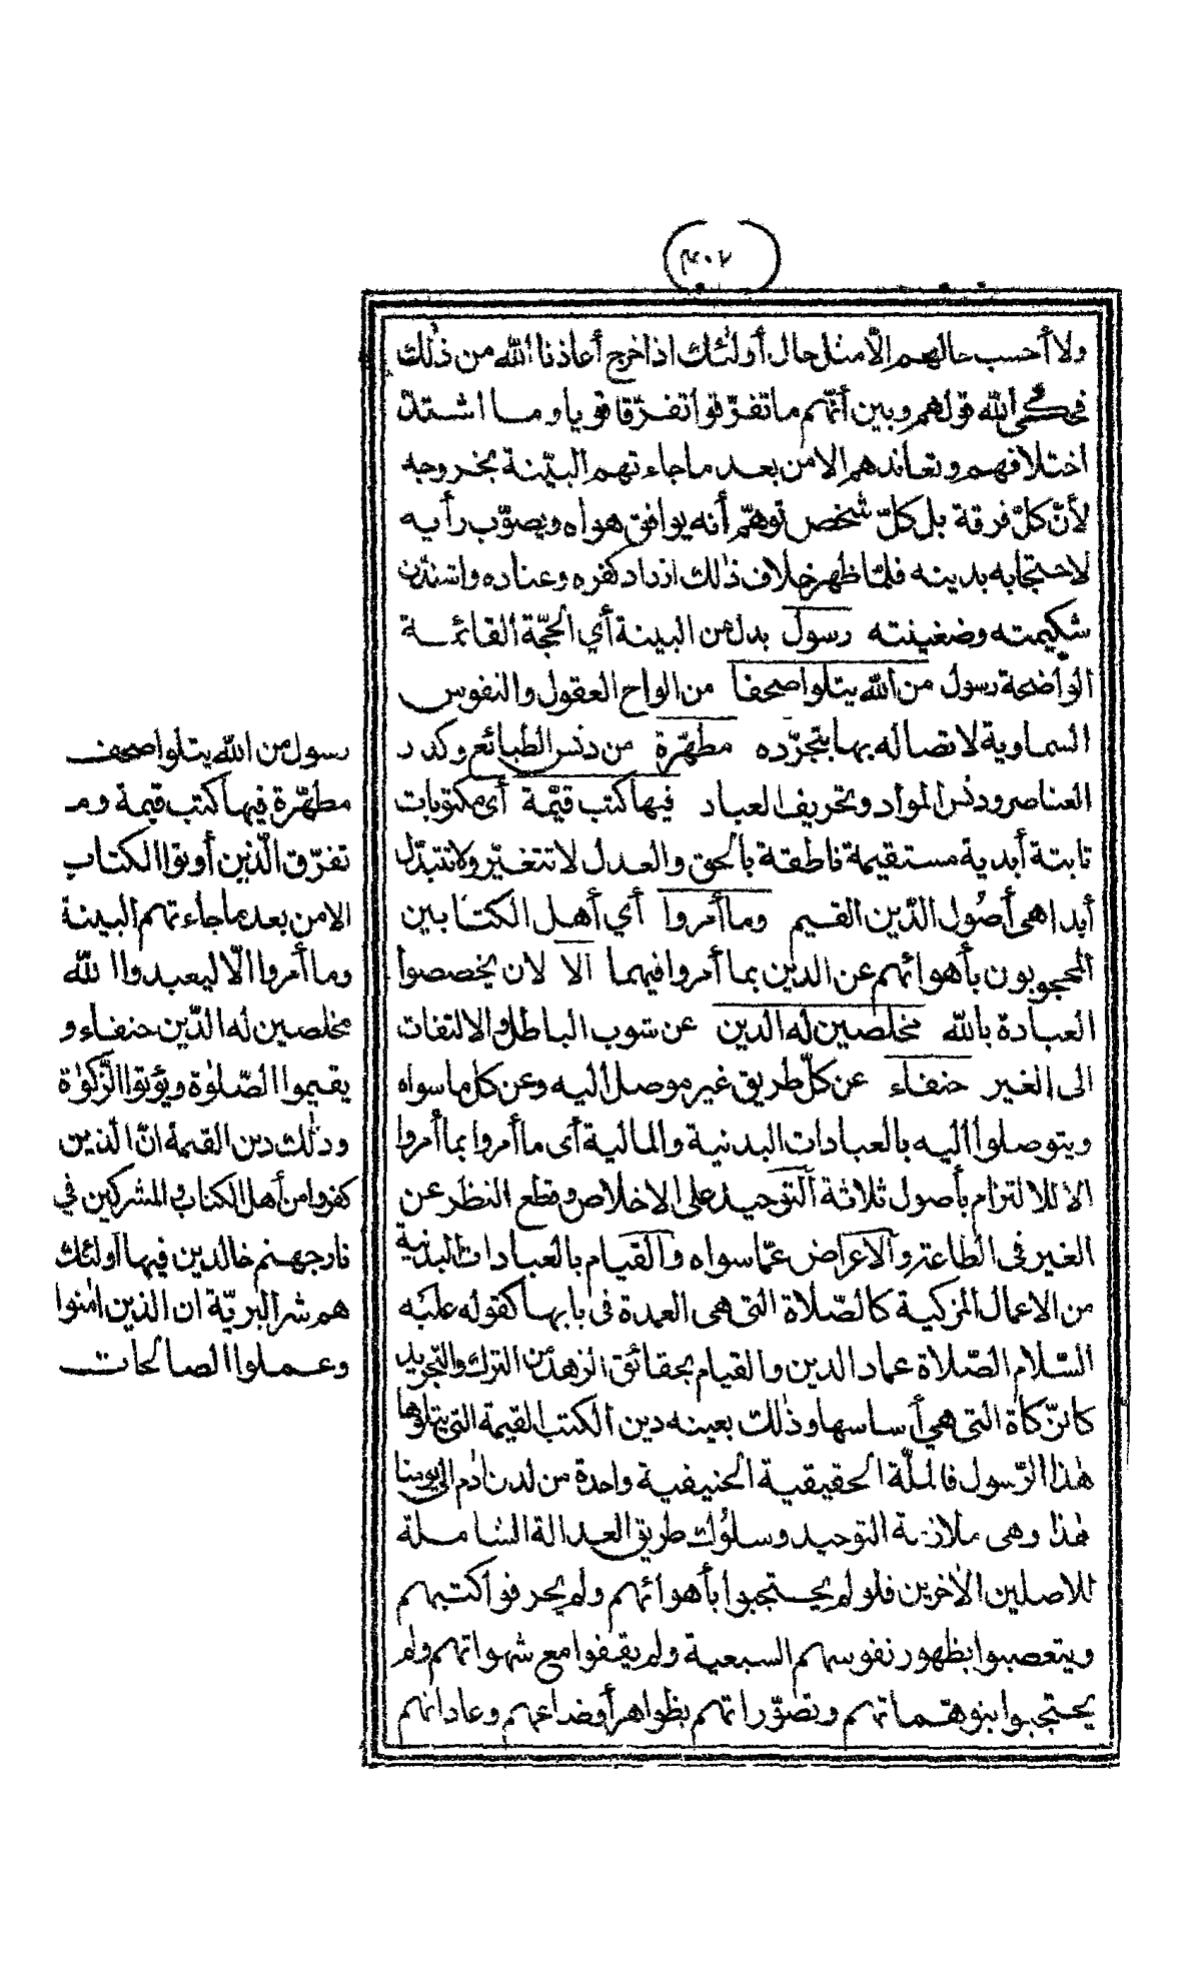 (٤٠٧)
ولا أحسب حالهم الّا مثل حال أولٰئك اذا خرج أعاذنا الله من ذٰلك
فحكى الله قولهم وبين أنّهم ما تفرّقوا تفرّقا قويا وما اشتدّ
اختلافهم وتعاندهم الا من بعد ما جاءتهم البيّنة بخروجه
لأنّ كلّ فرقة بل كلّ شخص توهّم أنه يوافق هواه ويصوّب رأيه
لاحتجابه بدينه فلمّا ظهر خلاف ذٰلك ازداد كفره وعناده واشتدّت
شكيمته وضغينته رسول بدل من البينة أي الحجّة القائمة
الواضحة رسول من الله يتلوا صحفا من الواح العقول والنفوس
السماوية لاتصاله بها بتجرّده مطهّرة من دنس الطبائع وكدر
العناصر ودنس المواد وتحريف العباد فيها كتب قيّمة أى مكتوبات
ثابتة أبدية مستقيمة ناطقة بالحق والعدل لا تتغيّر ولا تتبدّل
أبدا هى أصول الدّين القيم وما أمروا أي أهل الكتابين
المحجوبون بأهوائهم عن الدين بما أمروا فيهما الا لان يخصصوا
العبادة بالله مخلصين له الدين عن شوب الباطل والالتفات
الى الغير حنفاء عن كلّ طريق غير موصل اليه وعن كل ما سواه
ويتوصلوا اليه بالعبادات البدنية والمالية أى ما أمروا بما أمروا
الا للالتزام بأصول ثلاثة التوحيد على الاخلاص وقطع النظر عن
الغير فى الطاعة والاعراض عمّا سواه والقيام بالعبادات البدنية
من الاعمال المزكية كالصّلاة التى هى العمدة فى بابها كقوله عليه
السّلام الصّلاة عماد الدين والقيام بحقائق الزهد من الترك والتجريد
كالزّكاة التى هي أساسها وذٰلك بعينه دين الكتب القيمة التى يتلوها
هٰذا الرّسول فالملّة الحقيقية الحنيفية واحدة من لدن اٰدم الى يومنا
هٰذا وهى ملازمة التوحيد وسلوك طريق العدالة الشاملة
للاصلين الاٰخرين فلو لم يحتجبوا بأهوائهم ولم يحرفوا كتبهم
ويتعصبوا بظهور نفوسهم السبعية ولم يقفوا مع شهواتهم ولم
يحتجبوا بتوهّماتهم وتصوّراتهم بظواهر أوضاعهم وعاداتهم
رسول من الله يتلوا صحف
مطهّرة فيها كتب قيمة وم
تفرّق الّذين أوتوا الكتاب
الا من بعد ما جاءتهم البينة
وما أمروا الّا ليعبدوا الله
مخلصين له الدّين حنفاء و
يقيموا الصّلوٰة ويؤتوا الزّكوٰة
وذٰلك دين القيمة انّ الّذين
كفروا من أهل الكتاب والمشركين في
نار جهنم خالدين فيها أولئك
هم شر البريّة ان الذين اٰمنوا
وعملوا الصالحات